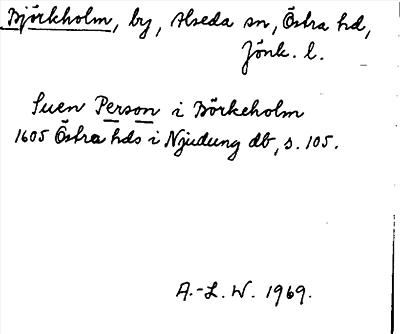 Björkholm, by, Alseda sn, Östra hd,
Jönk. l.
Suen Person i Börkeholm
1605 Östra hds i Njudung db, s. 105.
A.-L. W. 1969.